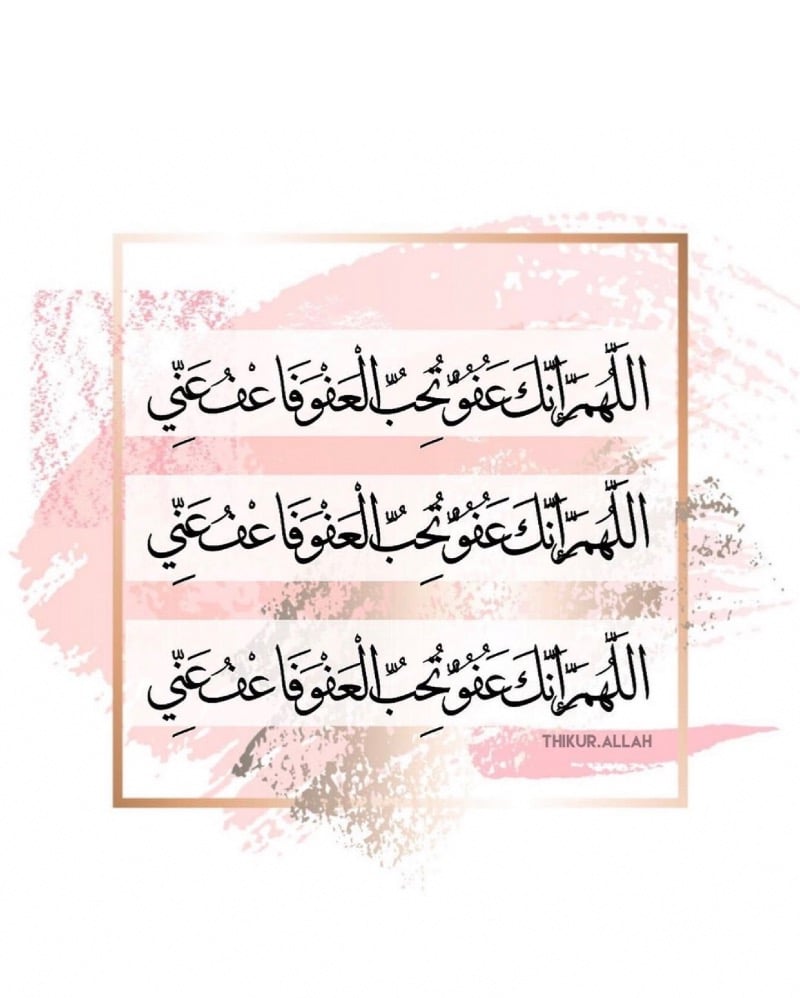 اللَّهُمَّ إِنَّكَ عَفُوٌّ تُحِبُّ الْعَفْوَ فَاعْفُ عَنِّي
اللَّهُمَّ إِنَّكَ عَفُوٌّ تُحِبُّ الْعَفْوَ فَاعْفُ عَنِّي
اللَّهُمَّ إِنَّكَ عَفُوٌّ تُحِبُّ الْعَفْوَ فَاعْفُ عَنِّي
THIKUR.ALLAH